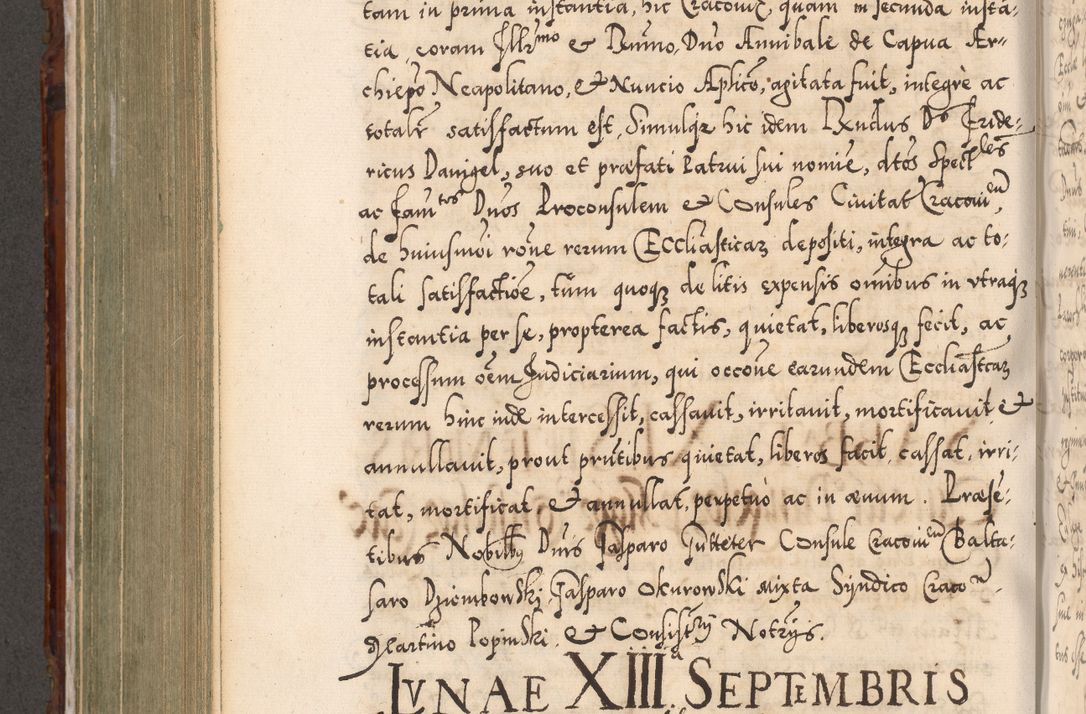 tam in prima instantia, hic Cracoviæ, quam in secunda insta-
tia, coram Illrmo et Rmno Dno Annibale de Capua Ar-
chiepo Neapolitano, et Nuncio Aplico, agitata fuit, integrè ac
totalr satisfactum est. Simulqz hic idem Rxndus Ds Fride-
ricus Danigel, suo et præfati Patrui sui nomie, dtos Spectles
ac famtos Dnos Proconsulem et Consules Civitat Cracovien,
de huiusmoi rone rerum Eccliasticaz depositi, integra ac to-
tali satisfactioe, tum quoqz de litis expensis omibus in vtraqz
instantia per se, propterea factis, quietat, liberosqz fecit, ac
processum oem Judiciarium, qui occone earundem Eccliasticaz
rerum hinc inde intercessit, cassavit, irritavit, mortificavit et
annullavit, prout prntibus quietat, liberos facit, cassat, irri-
tat, mortificat, et annullat, perpetuo ac in ævum. Præsē-
tibus Nobilibus Dnis Jasparo Gutteter Consule Cracovien Balta-
saro Dziembowski, Jasparo Okurowski mixta Syndico Craco
Martino Popinski et Consistrij Notrijs.
LVNAE XIII SEPTEMBRIS